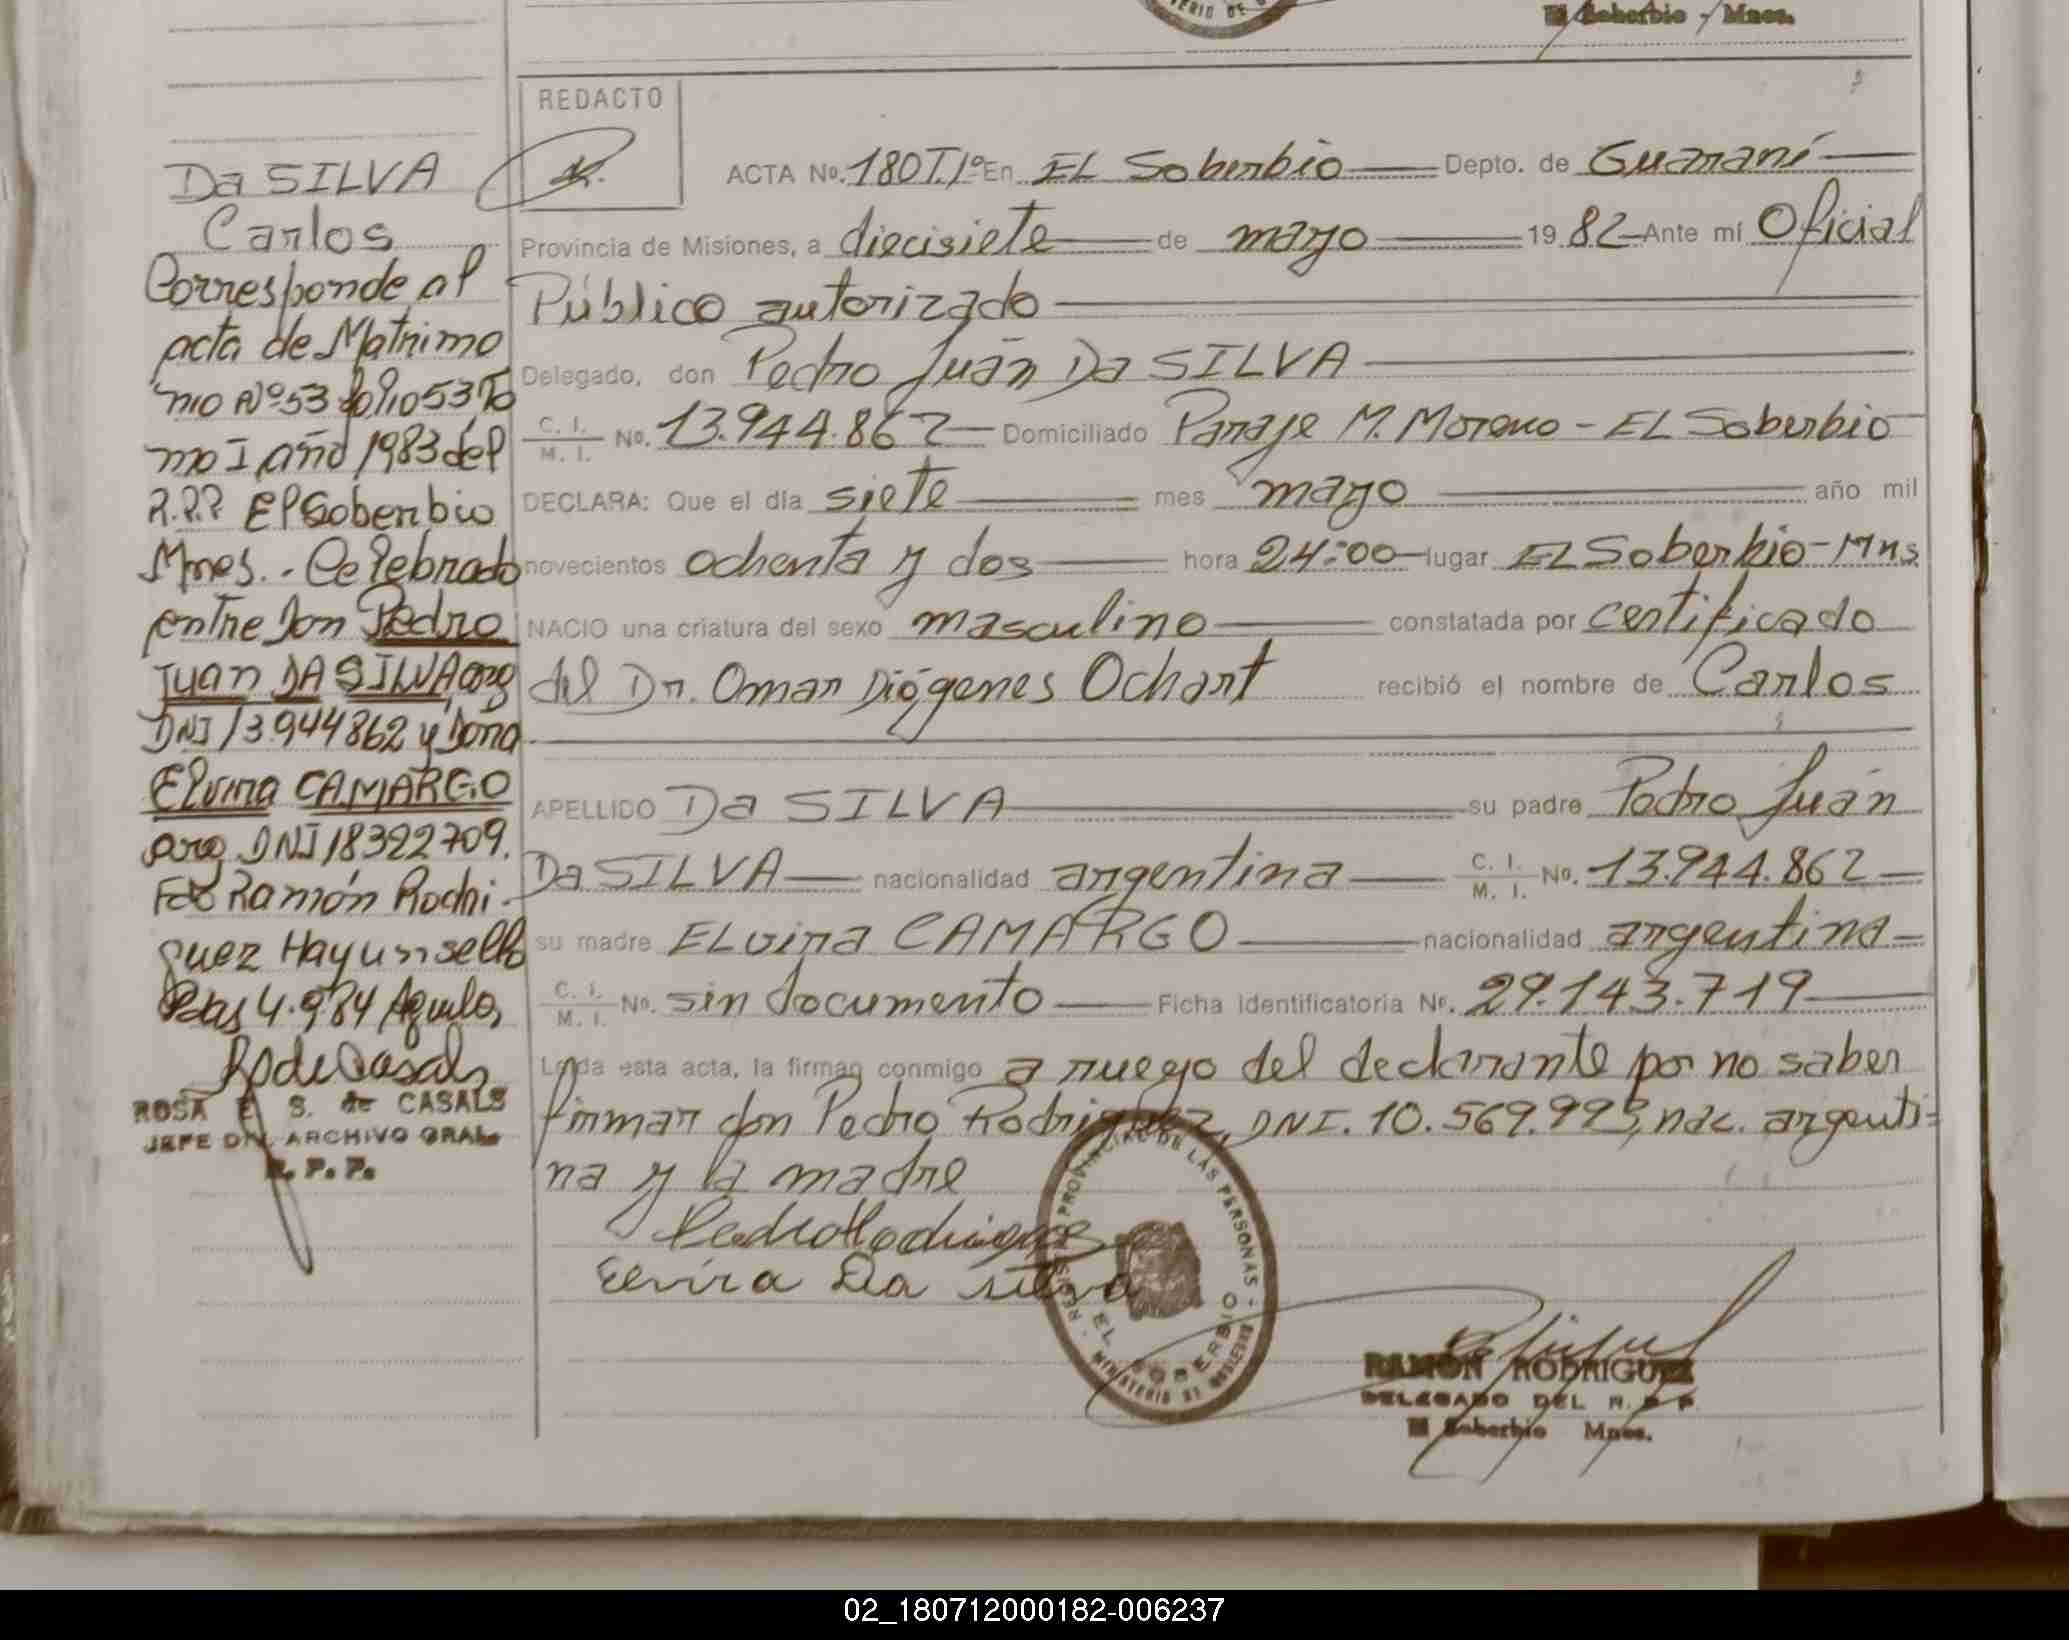 El Soberbio - Mnes.
REDACTO
DaSILVA
Carlos
Corresponde al
acta de Matrimo
nio Nº53 folio53To
mo I año 1983 del
R.P.P El Soberbio
Mnes.- Celebrado
entre Don Pedro
Juan DA SILVA, arg
DNI 13.944862 y Doña
Elvira CAMARGO
arg. DNI 18322709.
Fdo Ramón Rodri
guez Hay un sello
Pdas 4.984
ROSA E. S. de CASALS
JEFE DN. ARCHIVO GRAL.
R. P. P.
ACTA No. 180T.Iº En EL Soberbio Depto. de Guaraní
Provincia de Misiones, a diecisiete de mayo 19 82 Ante mí Oficial
Público autorizado
Delegado, don Pedro Juán Da SILVA
C. I. / M. I. No. 13.944.862 Domiciliado Paraje M. Moreno - EL Soberbio
DECLARA: Que el día siete mes mayo año mil
novecientos ochenta y dos hora 24:00 lugar EL Soberbio-Mns
NACIO una criatura del sexo masculino constatada por certificado
del Dr. Omar Diógenes Ochart recibió el nombre de Carlos
APELLIDO Da SILVA su padre Pedro Juán
Da SILVA nacionalidad argentina C. I. / M. I. No. 13.944.862
su madre ELvira CAMARGO nacionalidad argentina
C. I. / M. I. No. sin documento Ficha identificatoria No. 29.143.719
Leída esta acta, la firman conmigo a ruego del declarante por no saber
firmar don Pedro Rodriguez, DNI. 10.569.993, nac. argenti=
na y la madre
Pedro Rodriguez
Elvira Da silva
REGISTRO PROVINCIAL DE LAS PERSONAS
EL SOBERBIO
MINISTERIO DE GOBIERNO
RAMON RODRIGUEZ
DELEGADO DEL R. P. P.
El Soberbio Mnes.
02_180712000182-006237